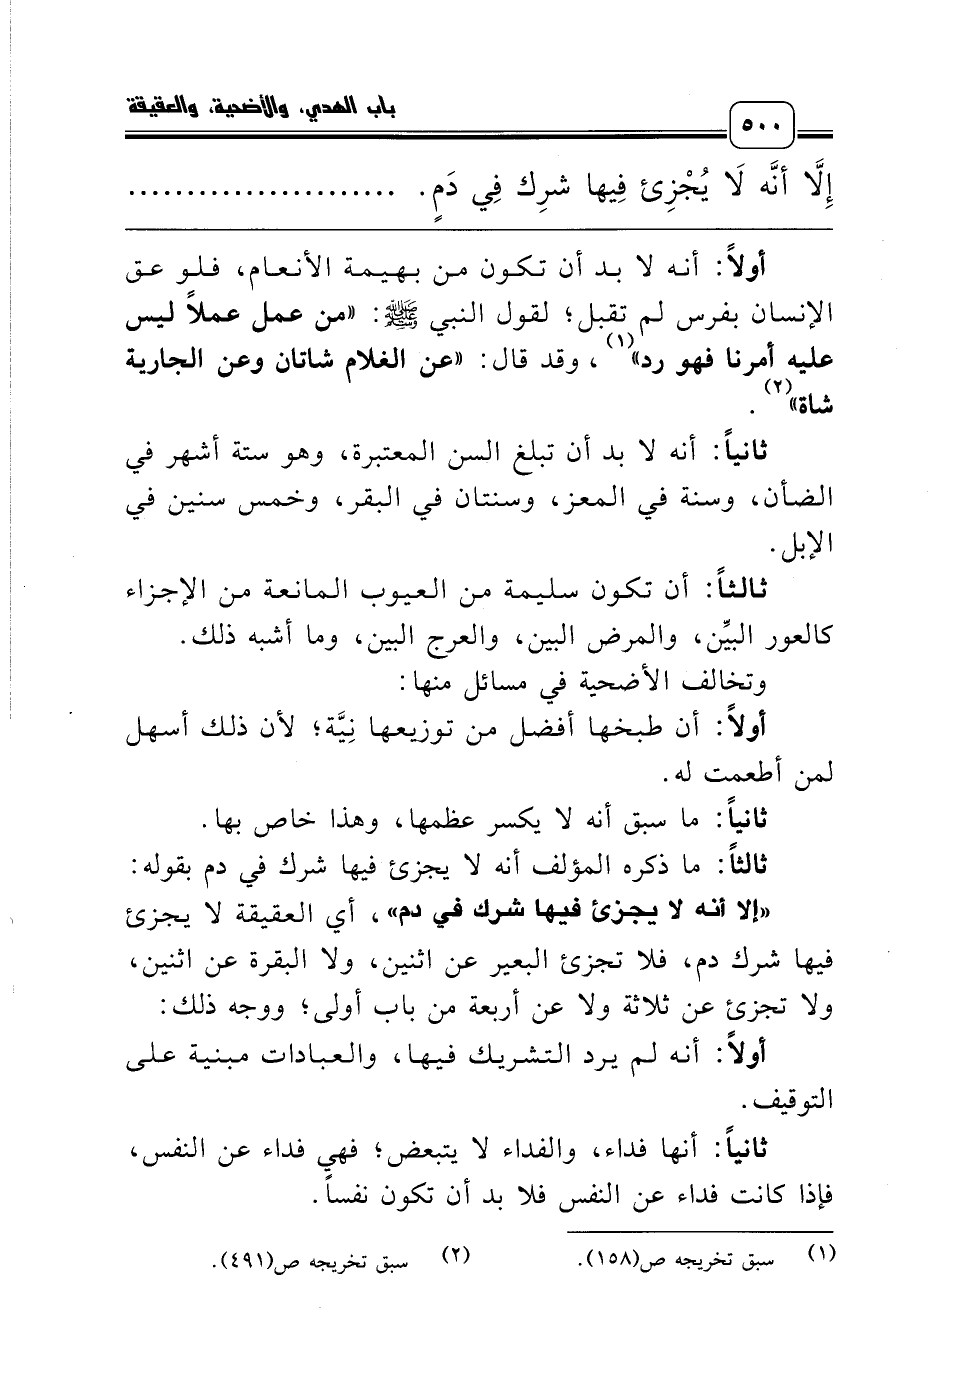 باب الهدي، والأضحية، والعقيقة
٥٠٠
إِلَّا أَنَّه لَا يُجْزِئ فِيها شرِك فِي دَمٍ. ......................
أولاً: أنه لا بد أن تكون من بهيمة الأنعام، فلو عق
الإنسان بفرس لم تقبل؛ لقول النبي ﷺ: «من عمل عملاً ليس
عليه أمرنا فهو رد»(١)، وقد قال: «عن الغلام شاتان وعن الجارية
شاة»(٢).
ثانياً: أنه لا بد أن تبلغ السن المعتبرة، وهو ستة أشهر في
الضأن، وسنة في المعز، وسنتان في البقر، وخمس سنين في
الإبل.
ثالثاً: أن تكون سليمة من العيوب المانعة من الإجزاء
كالعور البيِّن، والمرض البين، والعرج البين، وما أشبه ذلك.
وتخالف الأضحية في مسائل منها:
أولاً: أن طبخها أفضل من توزيعها نِيَّة؛ لأن ذلك أسهل
لمن أطعمت له.
ثانياً: ما سبق أنه لا يكسر عظمها، وهذا خاص بها.
ثالثاً: ما ذكره المؤلف أنه لا يجزئ فيها شرك في دم بقوله:
«إلا أنه لا يجزئ فيها شرك في دم»، أي العقيقة لا يجزئ
فيها شرك دم، فلا تجزئ البعير عن اثنين، ولا البقرة عن اثنين،
ولا تجزئ عن ثلاثة ولا عن أربعة من باب أولى؛ ووجه ذلك:
أولاً: أنه لم يرد التشريك فيها، والعبادات مبنية على
التوقيف.
ثانياً: أنها فداء، والفداء لا يتبعض؛ فهي فداء عن النفس،
فإذا كانت فداء عن النفس فلا بد أن تكون نفساً.
(١) سبق تخريجه ص(١٥٨). (٢) سبق تخريجه ص(٤٩١).